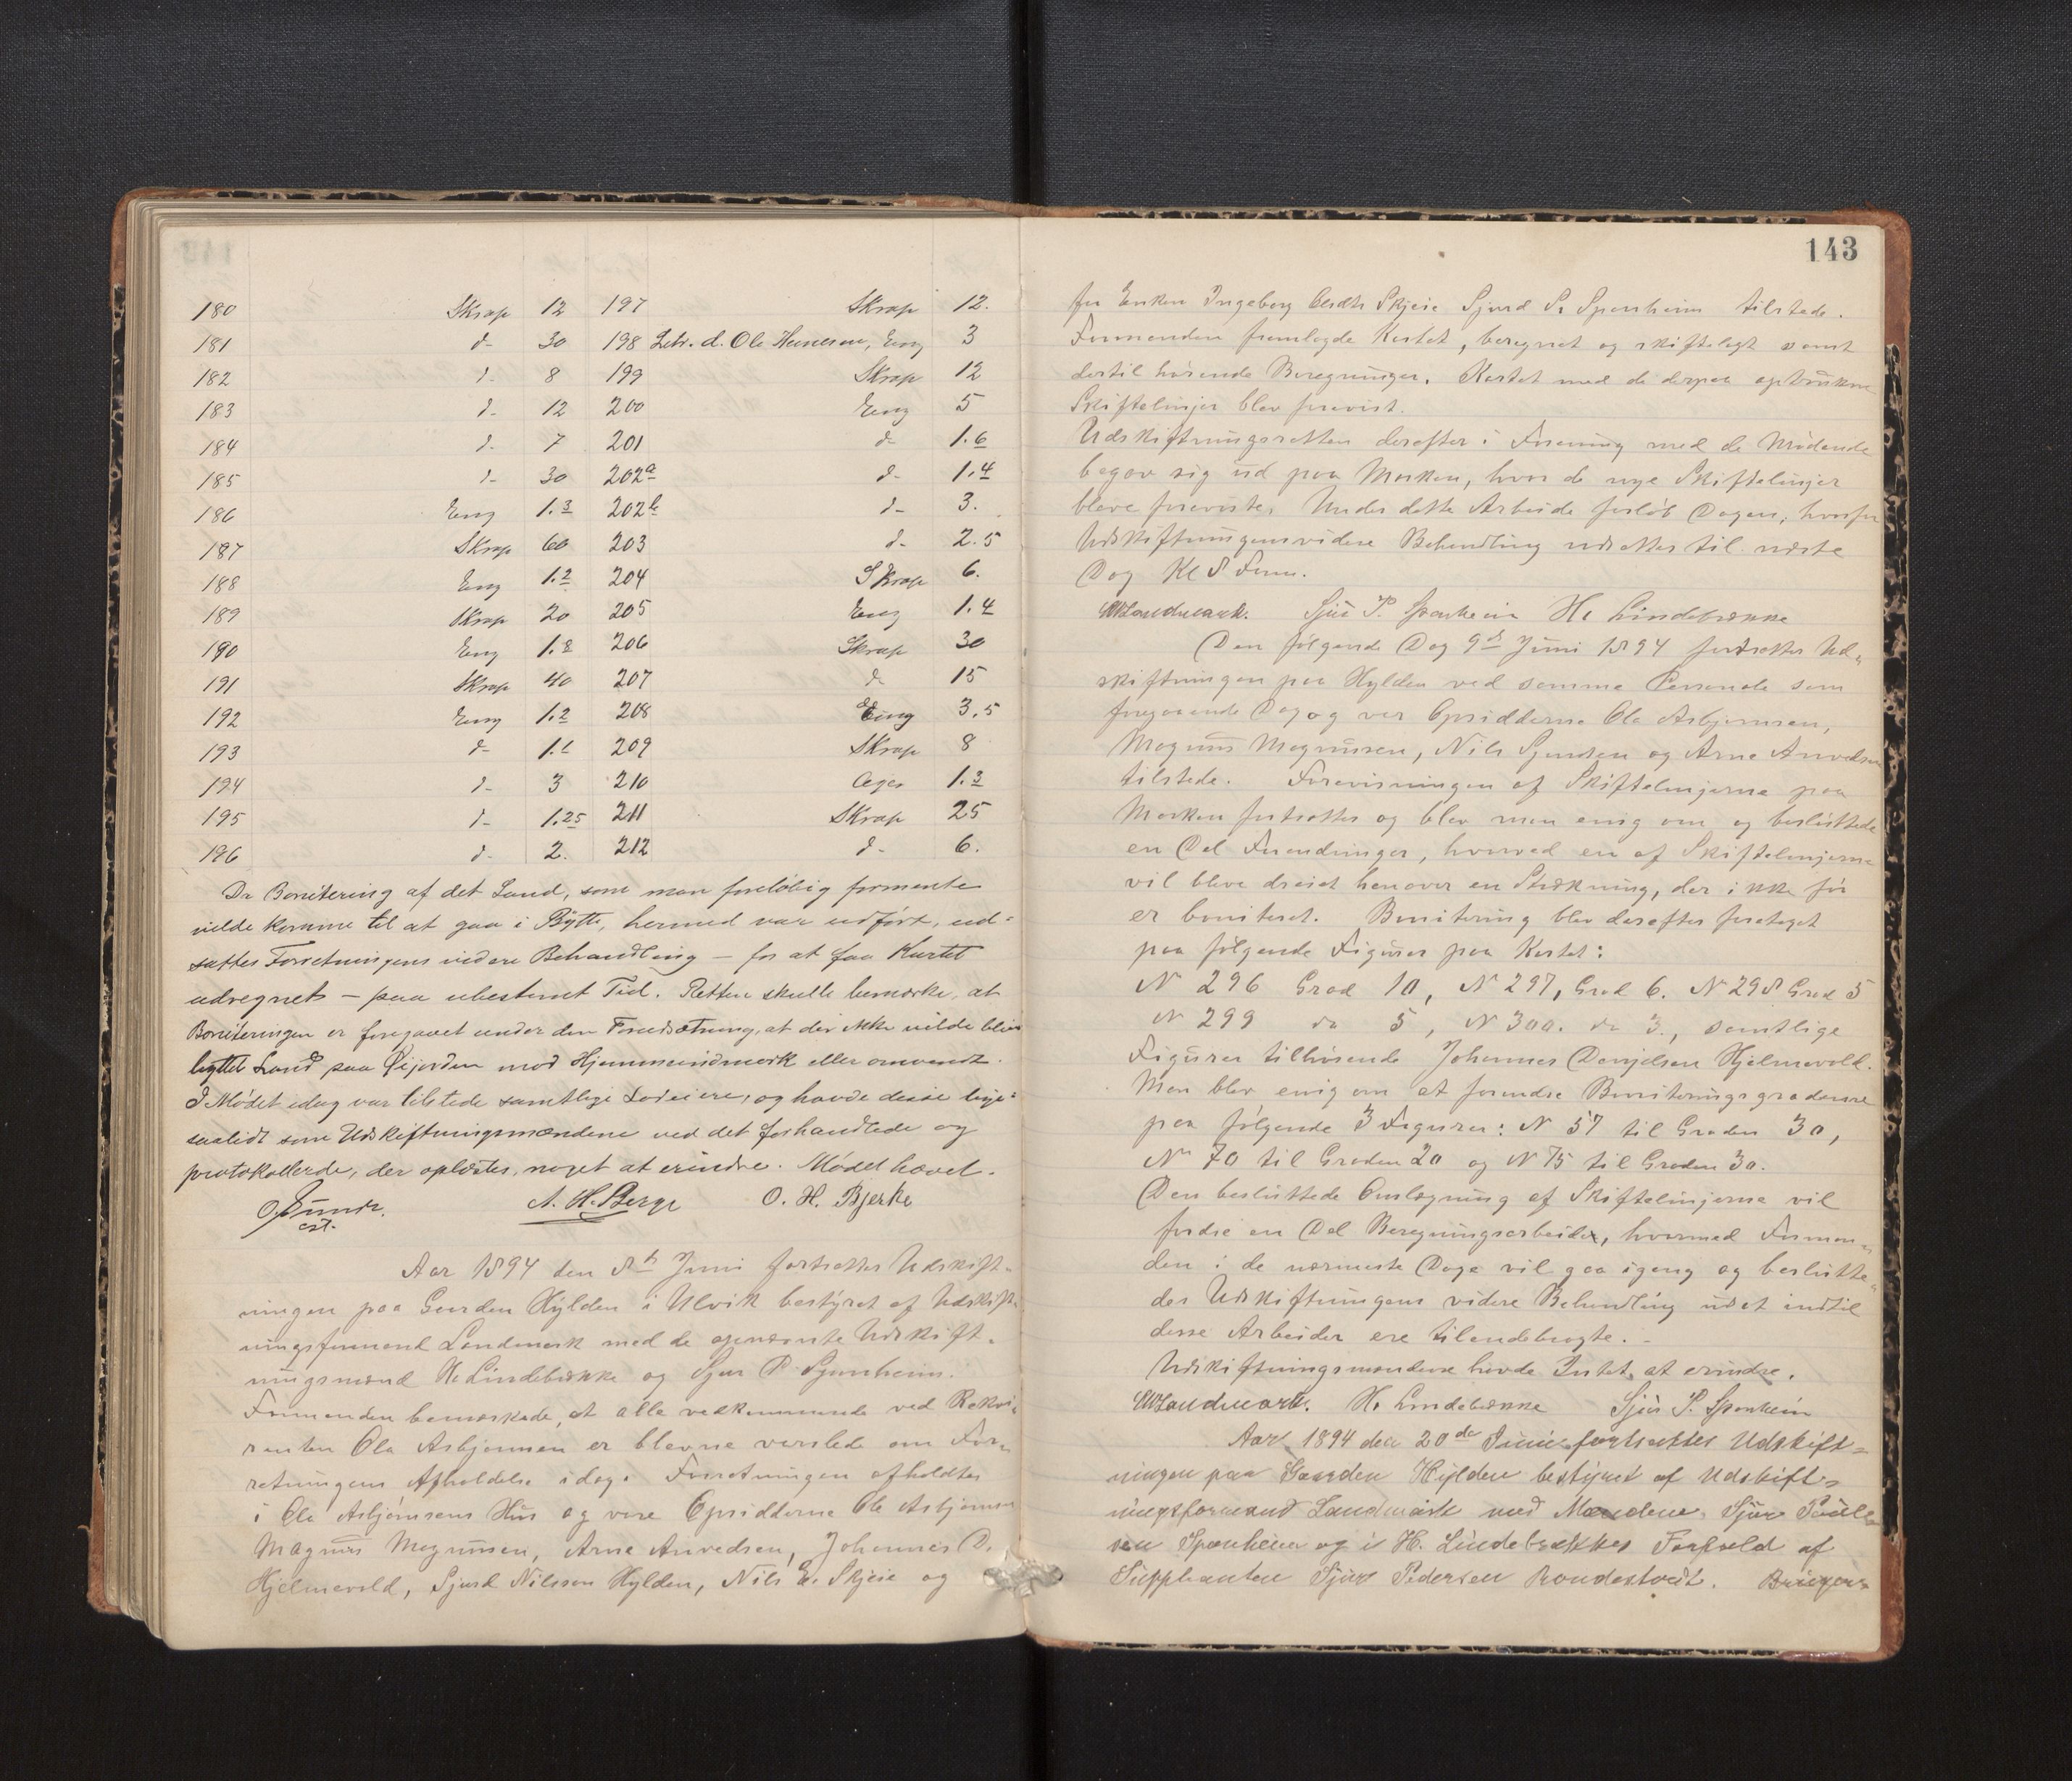 180 Skrap 12 197 Skrap 12.
181 d- 30 198 Lebr. d. Ole Hansen, Eng 3
182 d- 8 199 Skrap 12
183 d- 12 200 Eng 5
184 d- 7 201 d- 1.6
185 d- 30 202a d- 1.4
186 Eng 1.3 202b d- 3.
187 Skrap 60 203 d- 2.5
188 Eng 1.2 204 Skrap 6.
189 Skrap 20 205 Eng 1.4
190 Eng 1.8 206 Skrap 30
191 Skrap 40 207 d- 15
192 Eng 1.2 208 Eng 3.5
193 d- 1.6 209 Skrap 8
194 d- 3 210 Ager 1.3
195 d- 1.25 211 Skrap 25
196 d- 2. 212 d- 6.
Da Bonitering af det Land, som man foreløbig formente
vilde komme til at gaa i Bytte, hermed var udført, ud=
sattes Forretningens videre Behandling – for at faa Kartet
udregnet – paa ubestemt Tid. Retten skulle bemærke, at
Boniteringen er foregaaet under den Forudsætning, at der ikke vilde blive
byttet Land paa Øijorden mod Hjemmeindmark eller omvendt.
I Mødet idag var tilstede samtlige Lodeiere, og havde disse lige=
saalidt som Udskiftningsmændene ved det forhandlede og
protokollerde, der oplæstes, noget at erindre. Mødet hævet.
A. H. Berge O. H. Bjerke
Aar 1894 den 8de Juni fortsattes Udskift-
ningen paa Gaarden Hylden i Ulvik bestyret af Udskift-
ningsformand Landmark med de opnævnte Udskift-
ningsmænd H. Lindebrække og Sjur P. Sponheim.
Formanden bemærkede, at alle vedkommende ved Rekvi-
renten Ole Asbjørnsen er blevne varslede om For-
retningens Afholdelse idag. Forretningen afholdtes
i Ole Asbjørnsens Hus og vare Opsidderne Ole Asbjørnsen
Magnus Magnussen, Arne Anvedsen, Johannes D.
Hjelmevold, Sjurd Nilsson Hylden, Nils E. Skjeie og
143
for Enken Ingeborg Skjeie Sjurd S. Sponheim tilstede.
Formanden fremlagde Kartet, beregnet og skiftelagt samt
dertil hørende Beregninger. Kartet med de derpaa optrukne
Skiftelinjer blev forevist.
Udskiftningsretten derefter i Forening med de Mødende
begav sig ud paa Marken, hvor de nye Skiftelinjer
bleve foreviste. Under dette Arbeide forløb Dagen, hvorfor
Udskiftningens videre Behandling udsattes til næste
Dag Kl 8 Form.
Landmark. Sjur P. Sponheim H. Lindebrække
Den følgende Dag 9de Juni 1894 fortsattes Ud-
skiftningen paa Hylden ved samme Personale som
foregaaende Dag og var Opsidderne Ole Asbjørnsen,
Magnus Magnussen, Nils Sjursen og Arne Anvedsen
tilstede. Forevisningen af Skiftelinjerne paa
Marken fortsattes og blev man enig om og besluttede
en Del Forandringer, hvorved en af Skiftelinjerne
vil bleve dreiet henover en Strækning, der ikke før
er boniteret. Bonitering blev derefter foretaget
paa følgende Figurer paa Kartet:
N 296 Grad 10, N 297, Grad 6. N 298 Grad 5
N 299 do 5, N 300. do 3., samtlige
Figurer tilhørende Johannes Danjelsen Hjelmevold.
Man blev enig om at forandre Boniteringsgraderne
paa følgende 3 Figurer: N 57 til Graden 30,
N 70 til Graden 20 og N 75 til Graden 30.
Den besluttede Omlægning af Skiftelinjerne vil
fordre en Del Beregningsarbeide, hvormed Forman-
den i de nærmeste Dage vil gaa igang og beslutte-
des Udskiftningens videre Behandling udsat indtil
disse Arbeider ere tilendebragte. -
Udskiftningsmændene havde Intet at erindre.
Landmark. H. Lindebrække Sjur P. Sponheim
Aar 1894 den 20de Juni fortsattes Udskift=
ningen paa Gaarden Hylden bestyret af Udskift-
ningsformand Landmark med Mændene, Sjur Paul-
sen Sponheim og i H. Lindebrækkes Forfald af
Suppleanten Sjur Pedersen Rondestveit.